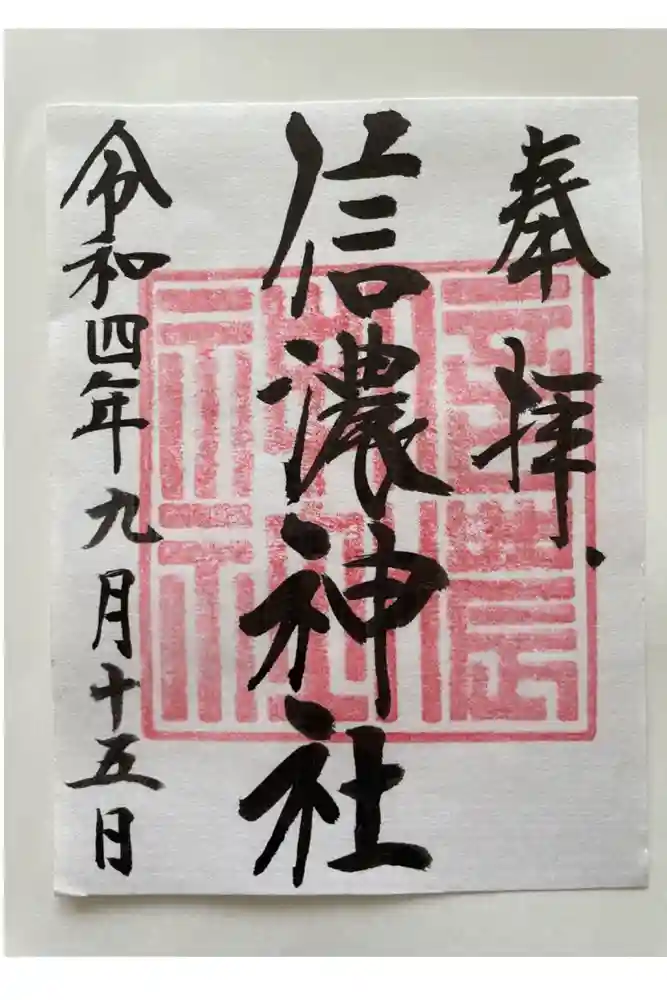 奉拝
信濃神社
令和四年九月十五日